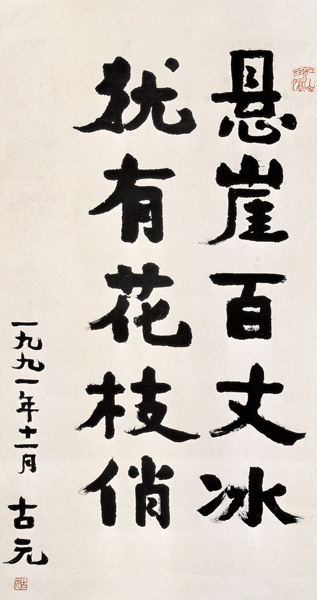 悬崖百丈冰
犹有花枝俏
一九九一年十一月 古元